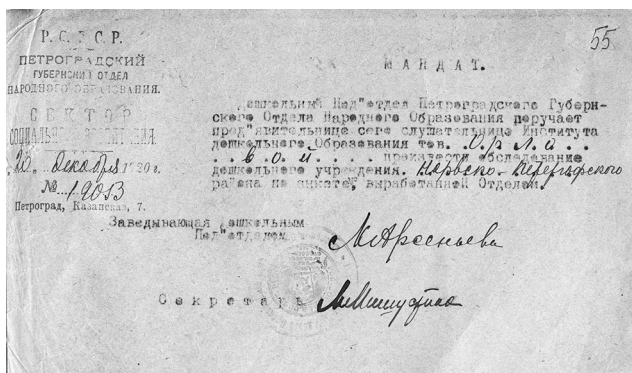 55
Р. С. Ф. С. Р.
ПЕТРОГРАДСКИЙ
ГУБЕРНСКИЙ ОТДЕЛ
НАРОДНОГО ОБРАЗОВАНИЯ.
СЕКТОР
СОЦИАЛЬНОГО ВОСПИТАНИЯ.
"20" декабря 1920 г.
№ 19013
Петроград, Казанская, 7.
МАНДАТ.
Дошкольный Под"отдел Петроградского Губерн-
ского Отдела Народного Образования поручает
пред"явительнице сего слушательнице Института
дошкольного Образования тов. . О р л о . .
. . в о й . . . . . произвести обследование
дошкольного учреждения. Нарвско-Петергофского
района по анкете, выработанной Отделом.
Заведывающая дошкольным
Под"отделом М. Арсеньева
Секретарь